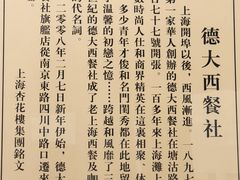 德大西餐社
上海開埠以後，西風漸進。一八九七
第一家華人創辦的德大西餐社在塘沽路
百七十七號開張。一百多年來上海灘上
數時尚人仕和商界精英在這裏相聚、休
多少青年才俊和名門閨秀都在此地留
溫馨的初戀之憶……跨越和風靡了三
紀的德大西餐社成了老上海西餐及咖
代名詞。
二零零八年二月七日新年伊始，德大
社旗艦店從南京東路四川中路口遷來
上海杏花樓集團銘文